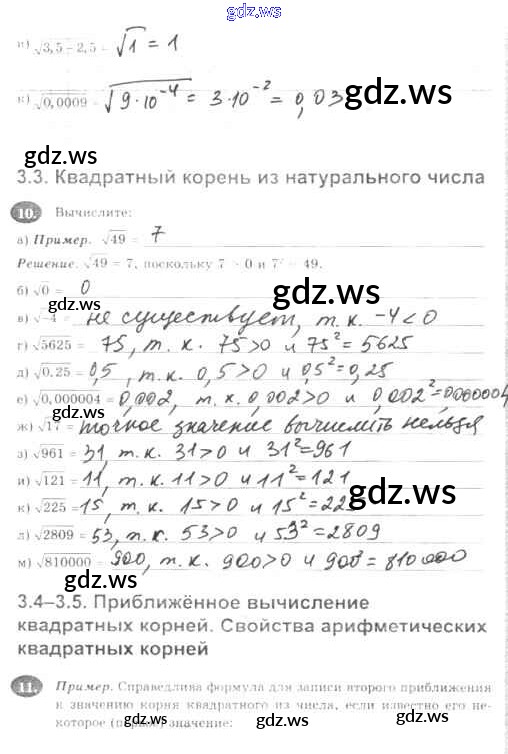 gdz.ws
и) √3,5 − 2,5 = √1 = 1
к) √0,0009 = √9·10⁻⁴ = 3·10⁻² = 0,03
gdz.ws
gdz.ws
3.3. Квадратный корень из натурального числа
10. Вычислите:
а) Пример. √49 = 7
Решение. √49 = 7, поскольку 7 > 0 и 7² = 49.
gdz.ws
б) √0 = 0
gdz.ws
в) √−4 = не существует, т.к. −4<0
г) √5625 = 75, т.к. 75>0 и 75²=5625
д) √0,25 = 0,5, т.к. 0,5>0 и 0,5²=0,25
е) √0,000004 = 0,002, т.к. 0,002>0 и 0,002²=0,000004
ж) √17 = точное значение вычислить нельзя
з) √961 = 31, т.к. 31>0 и 31²=961
и) √121 = 11, т.к. 11>0 и 11²=121
к) √225 = 15, т.к. 15>0 и 15²=225
gdz.ws
л) √2809 = 53, т.к. 53>0 и 53²=2809
м) √810000 = 900, т.к. 900>0 и 900²=810000
gdz.ws
3.4–3.5. Приближённое вычисление
квадратных корней. Свойства арифметических
квадратных корней
gdz.ws
11. Пример. Справедлива формула для записи второго приближения
к значению корня квадратного из числа, если известно его не-
которое (первое) значение:
gdz.ws